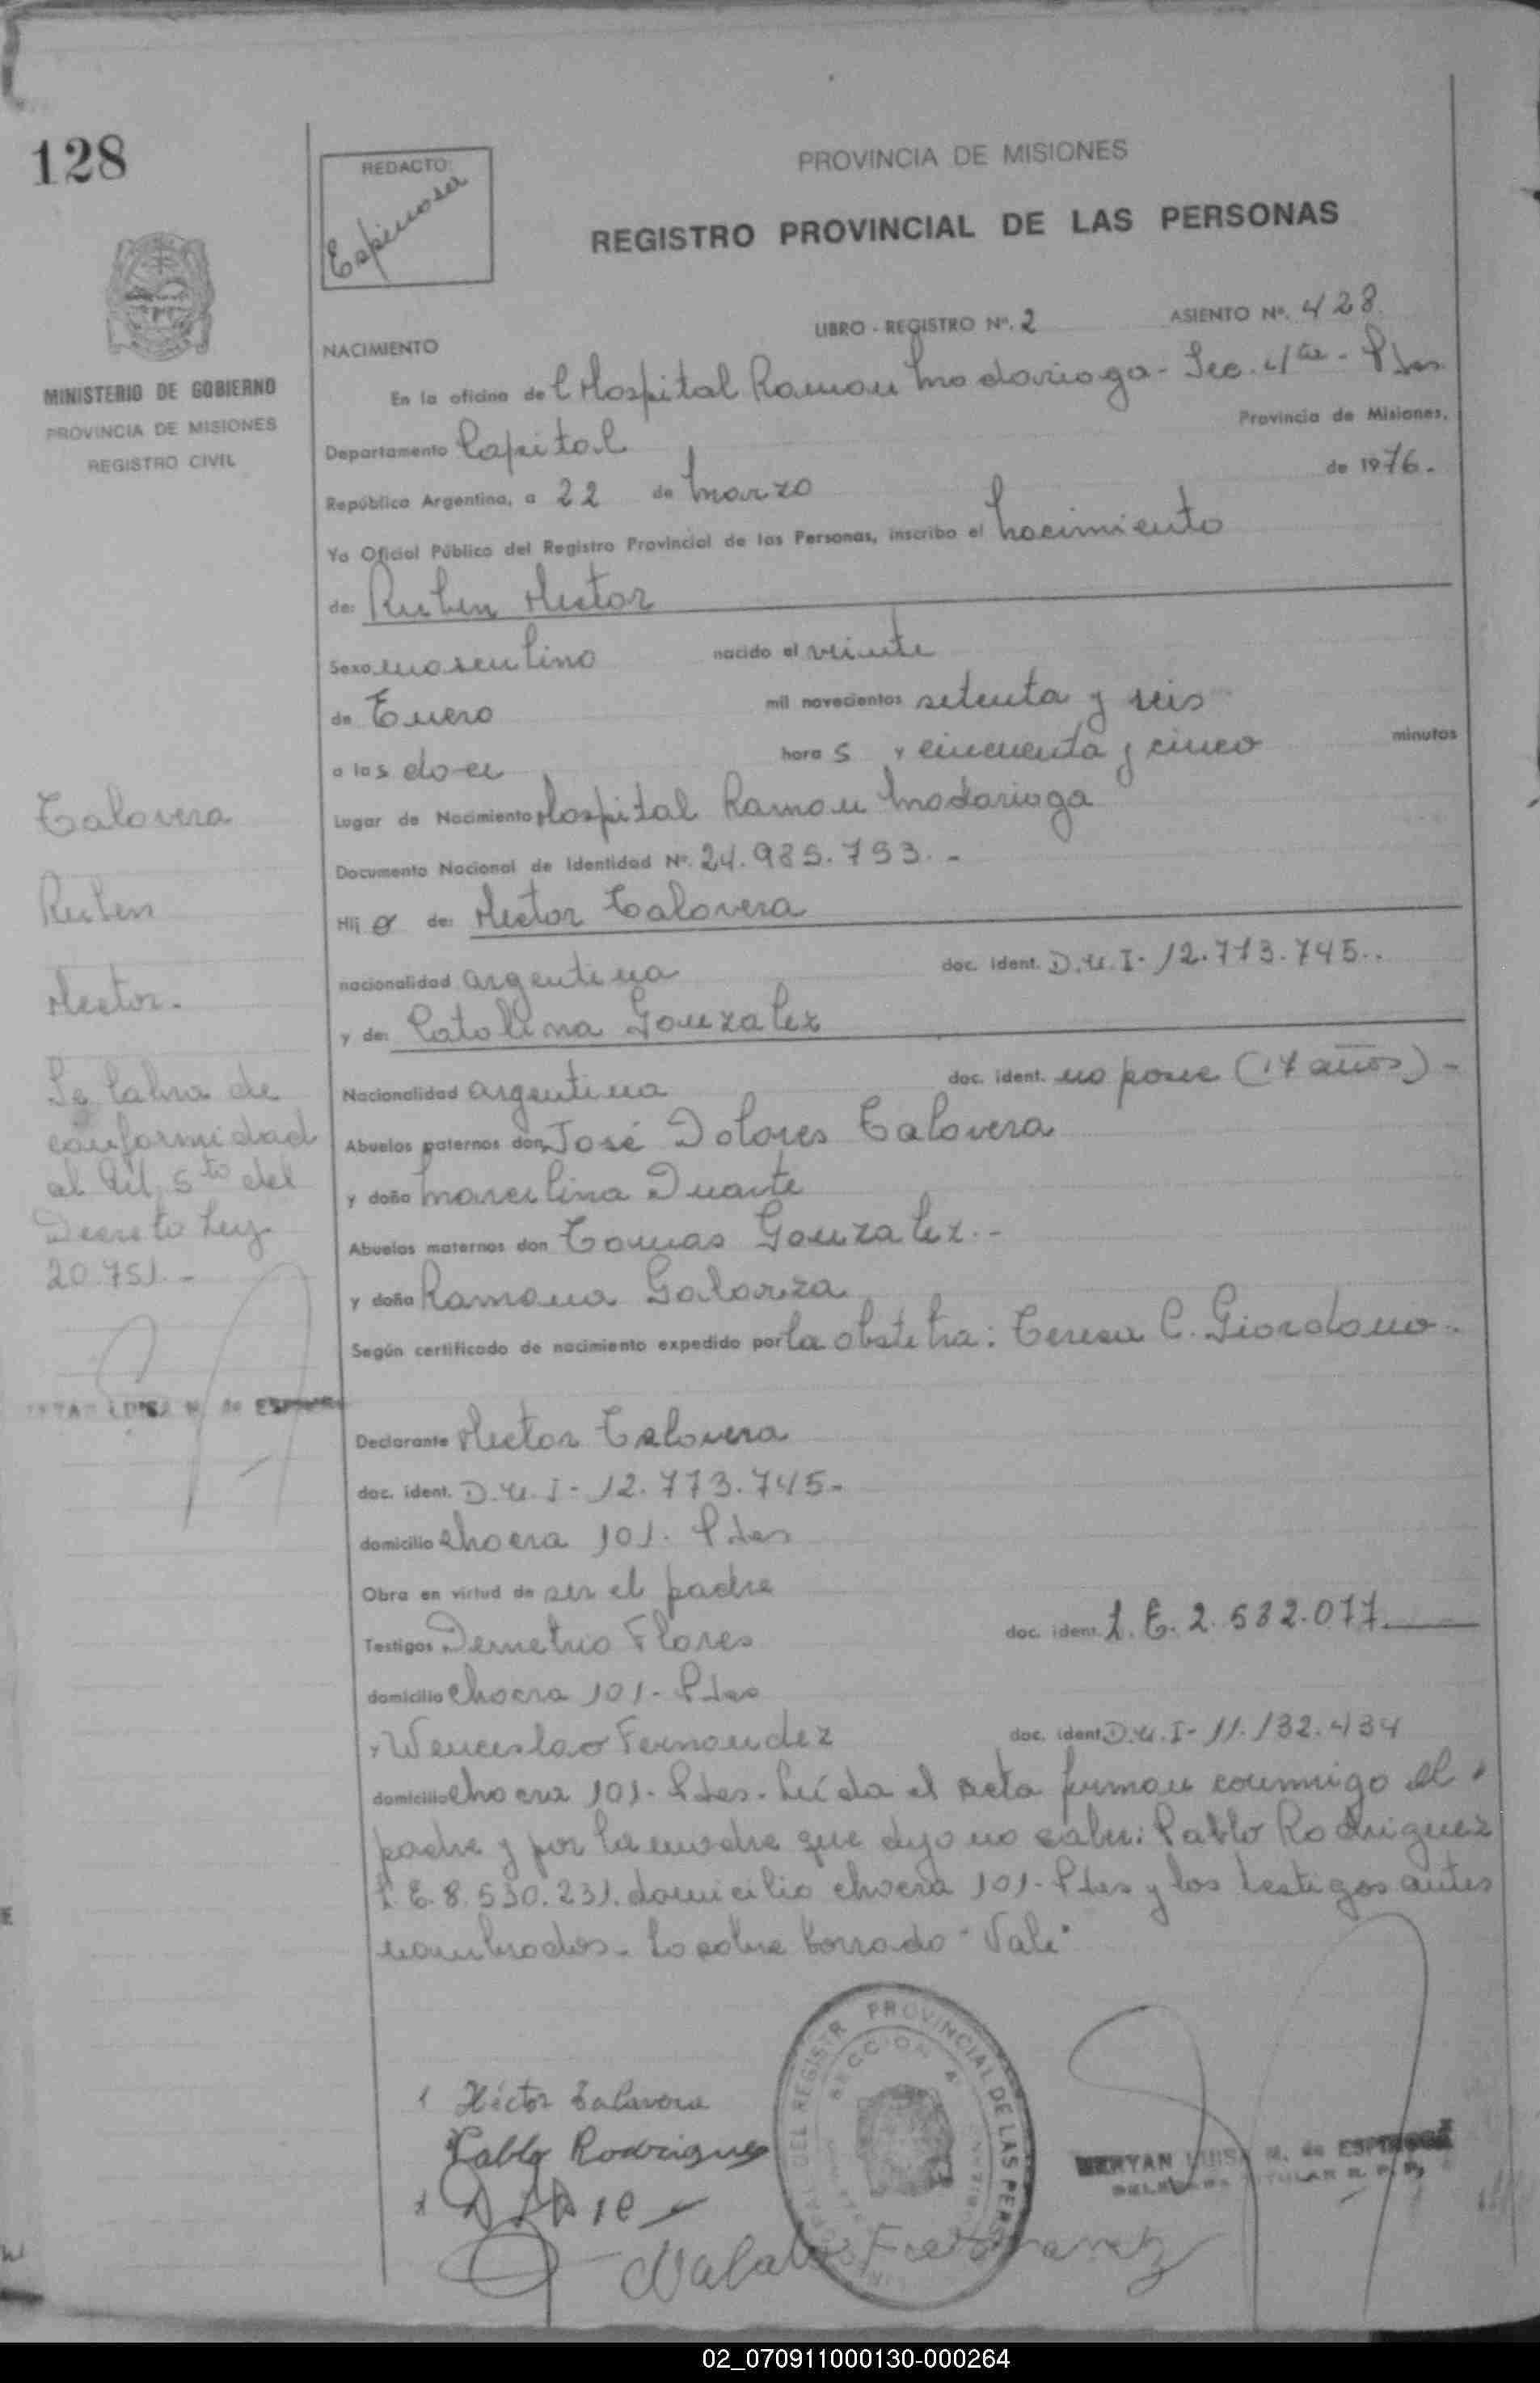 128
REDACTO:
Espinosa
PROVINCIA DE MISIONES
REGISTRO PROVINCIAL DE LAS PERSONAS
LIBRO - REGISTRO Nº. 2 ASIENTO Nº. 428.
NACIMIENTO
MINISTERIO DE GOBIERNO
PROVINCIA DE MISIONES
REGISTRO CIVIL
En la oficina del Hospital Ramon Madariaga - Sec. 4ta - Pdas
Provincia de Misiones,
Departamento Capital
República Argentina, a 22 de Marzo de 1976.
Yo Oficial Público del Registro Provincial de las Personas, inscribo el Nacimiento
de: Ruben Hector
Sexo masculino nacido el veinte
de Enero mil novecientos setenta y seis
a las doce horas y cincuenta y cinco minutos
Lugar de Nacimiento Hospital Ramon Madariaga
Documento Nacional de Identidad Nº. 24.985.793.-
Hijo de: Hector Talavera
nacionalidad argentina doc. ident. D.N.I- 12.773.745..
y de: Catalina Gonzalez
Nacionalidad argentina doc. ident. no posee (17 años)-
Abuelos paternos don José Dolores Talavera
y doña Marcelina Duarte
Abuelos maternos don Tomas Gonzalez.-
y doña Ramona Galarza
Según certificado de nacimiento expedido por la obstetra: Teresa C. Giordano.
Talavera
Ruben
Hector.
Se labra de
conformidad
al Art. 5to del
Decreto Ley
20.751.-
LUISA M. de ESPINOSA
Declarante Hector Talavera
doc. ident. D.N.I- 12.773.745-
domicilio chacra 101. Pdas
Obra en virtud de ser el padre
Testigos Demetrio Flores doc. ident. L.E. 2.582.077.
domicilio chacra 101- Pdas
y Wenceslao Fernandez doc. ident. D.N.I- 11.132.434
domicilio chacra 101- Pdas. Leída el acta firman conmigo el
padre y por la madre que dijo no saber: Pablo Rodriguez
L.E. 8.530.231. domicilio chacra 101- Pdas y los testigos antes
nombrados. Lo sobre borrado "Vale"
Héctor Talavera
Pablo Rodriguez
REGISTR PROVINCIAL DE LAS PERS
SECCION 4
MERYAN LUISA M. de ESPINOSA
TITULAR R. P. P.
02_070911000130-000264